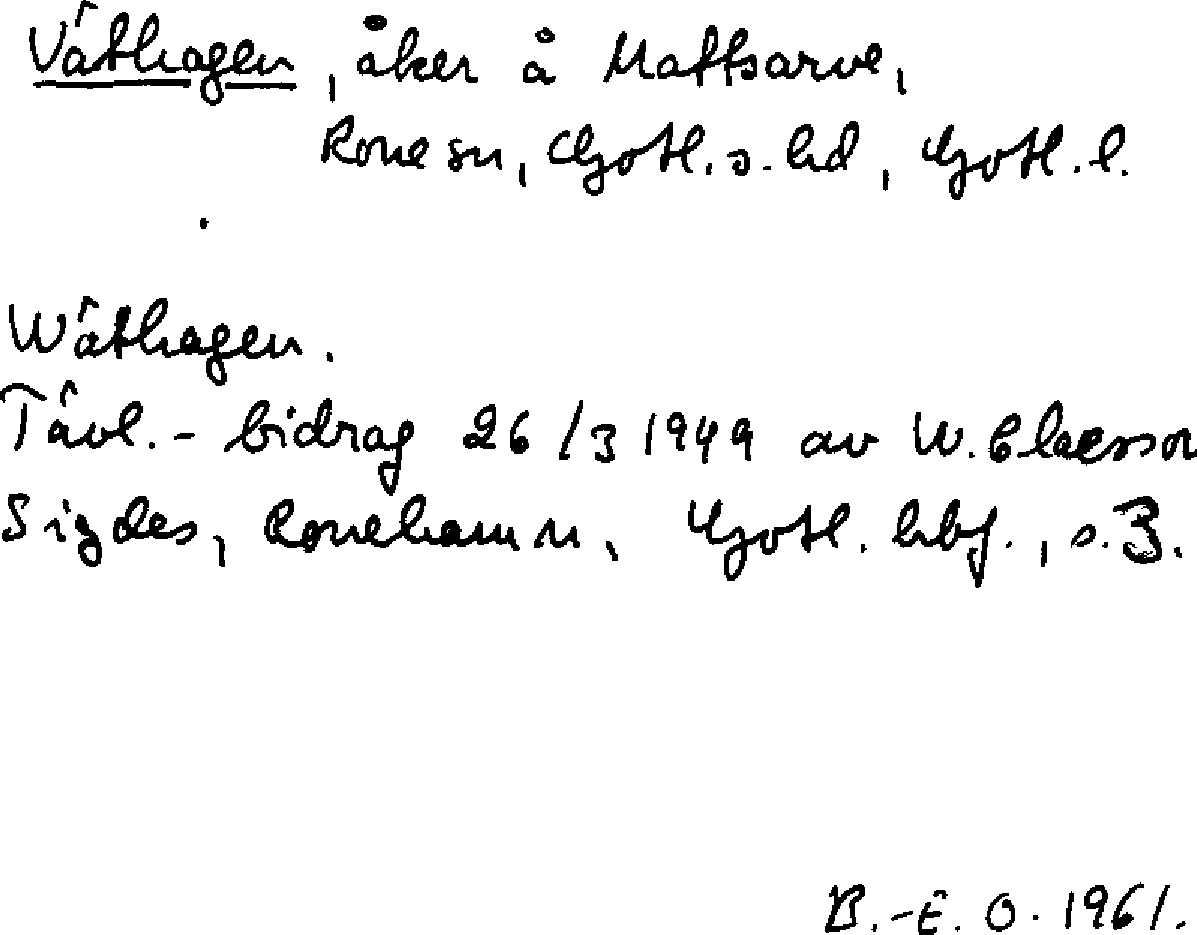 Väthagen, åker å Mattsarve,
Rone sn, Gotl. s. hd, Gotl. l.
Wäthagen.
Tävl.- bidrag 26/3 1949 av W. Claesson
Sigdes, Ronehamn. Gotl. hbf., s. 3.
B.-E. O. 1961.